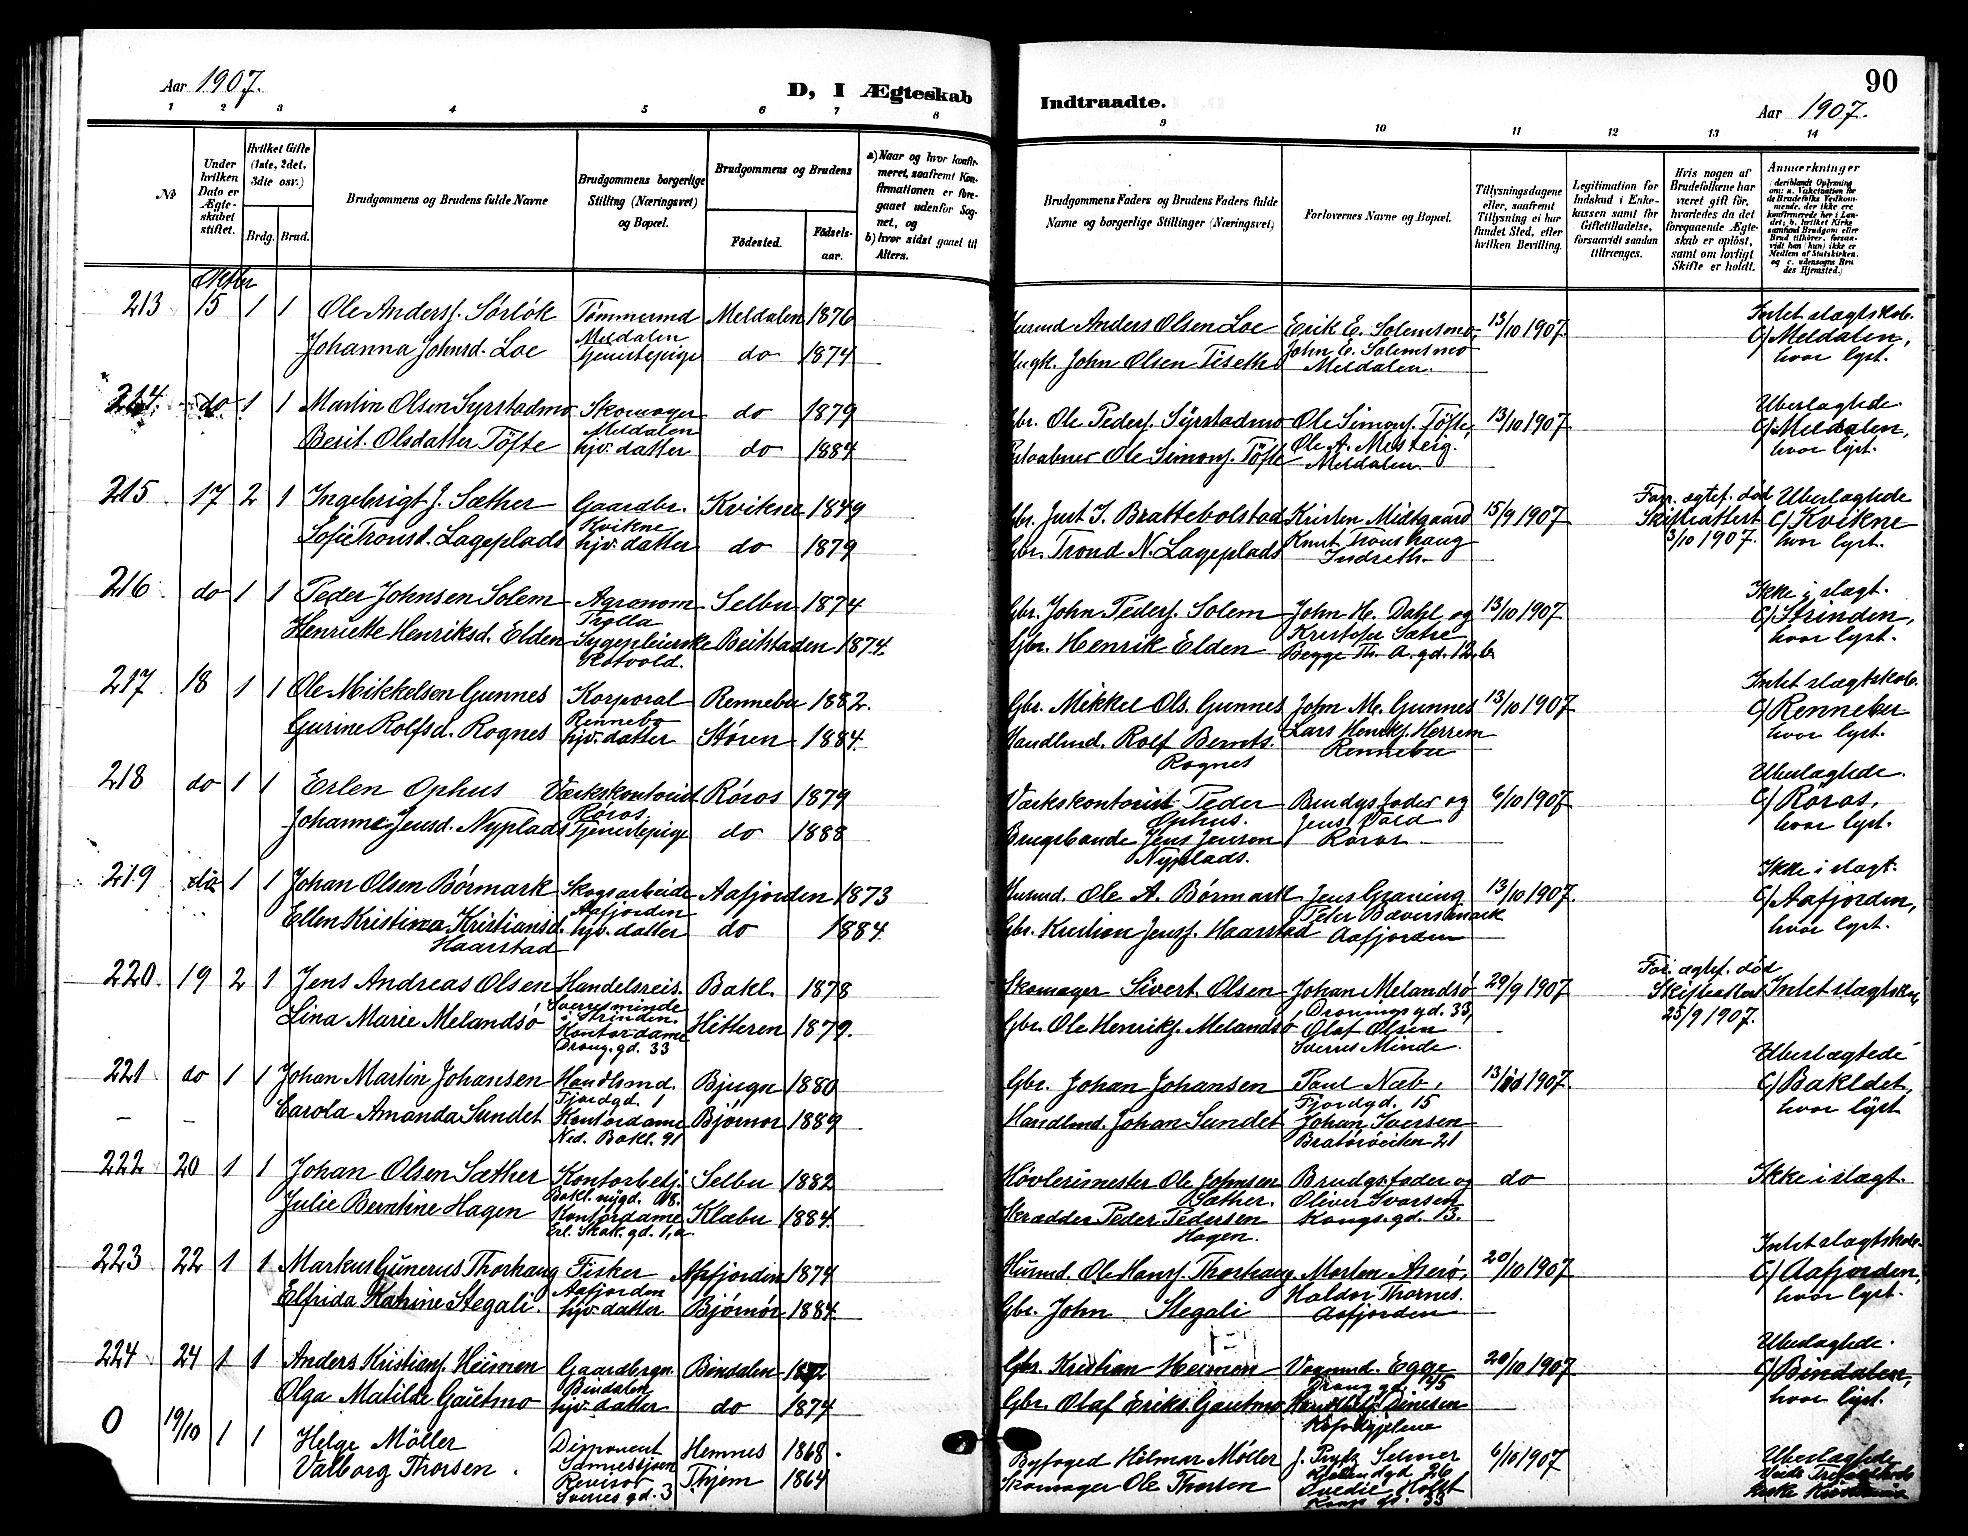 Aar 1907.
D, I Ægteskab
Indtraadte.
90
Aar 1907.
1 2 3 4 5 6 7 8 9 10 11 12 13 14
№
Under hvilken Dato er Ægteskabet stiftet.
Hvilket Gifte (1ste, 2det, 3die osv.)
Brdg. Brud.
Brudgommens og Brudens fulde Navne
Brudgommens borgerlige Stilling (Næringsvei) og Bopæl.
Brudgommens og Brudens
Fødested. Fødselsaar.
a) Naar og hvor konfirmeret, saafremt Konfirmationen er foregaaet udenfor Sognet, og
b) hvor sidst gaaet til Alters.
Brudgommens Faders og Brudens Faders fulde Navne og borgerlige Stillinger (Næringsvei)
Forlovernes Navne og Bopæl.
Tillysningsdagene eller, saafremt Tillysning ei har fundet Sted, efter hvilken Bevilling.
Legitimation for Indskud i Enkekassen samt for Giftetilladelse, forsaavidt saadan tiltrænges.
Hvis nogen af Brudefolkene har været gift før, hvorledes da det foregaaende Ægteskab er opløst, samt om lovligt Skifte er holdt.
Anmærkninger
Oktbr
213 15 1 1 Ole Andersf. Sörlök Tömmermd Meldalen 1876 Husmd Anders Olsen Loe Erik E. Solemsmo, 13/10 1907 Intet slægtskab.
Meldalen C/ Meldalen,
Johanna Johnsd. Loe Tjenestepige do 1874 John Olsen Tiseth John E. Solemsmo hvor lyst.
Meldalen.
214. do 1 1 Martin Olsen Syrstadmo Skomager do 1879 Gbr. Ole Pedersf. Syrstadmo Ole Simonsf. Töfte, 13/10 1907 Ubeslægtede.
Meldalen C/ Meldalen,
Berit Olsdatter Töfte hjv. datter do 1884 Ole Simonsf. Töfte Ole A. Mesteig. hvor lyst.
Meldalen.
215 17 2 1 Ingebrigt J. Sæther Gaardbr. Kvikne 1849 Gbr. Just I. Brattebolstad Kristen Midtgaard 15/9 1907 Forr. ægtef. död Ubeslægtede
Kvikne Skifteattest C/ Kvikne
Sofie Tronsd. Lageplads hjv. datter do 1879 Gbr. Trond N. Lageplads Knut Tronshaug 3/10 1907. hvor lyst.
Indreth.
216 do 1 1 Peder Johnsen Solem Agronom Selbu 1874 Gbr. John Pedersf. Solem John H. Dahl og 13/10 1907 Ikke i slægt.
Trolla C/ Strinden,
Henriette Henriksd. Elden Sygepleierske Beitstaden 1874. Gbr. Henrik Elden Kristofer Sætre hvor lyst.
Rotvold. Begge Th. A. gd. 12 b
217 18 1 1 Ole Mikkelsen Gunnes Korporal Rennebu 1882. Gbr. Mikkel Ols. Gunnes John M. Gunnes 13/10 1907 Intet slægtskab.
Rennebo C/ Rennebu
Gurine Rolfsd. Rognes hjv. datter Støren 1884. Handlmd. Rolf Bernts. Lars Henrikf. Herrem hvor lyst.
Rognes Rennebu
218 do 1 1 Erlen Ophus Værkskontorist Røros 1879 Værkskontorist Peder Brudgs fader og 6/10 1907 Ubeslægtede.
Røros Ophus. C/ Röros,
Johanne Jensd. Nyplads Tjenestepige do 1888 Jens Jensen Jens Told hvor lyst.
Nyplads. Røros
219 do 1 1 Johan Olsen Börmark Skogsarbeide Aafjorden 1873 Husmd. Ole A. Börmark Jens Graning 13/10 1907. Ikke i slægt.
Aafjorden C/ Aafjorden,
Ellen Kristina Kristiansd. hjv. datter do 1884. Gbr. Kristian Jensf. Haarstad Peter Bæversmark hvor lyst.
Haarstad Aafjorden
220. 19 2 1 Jens Andreas Olsen Handelsreis. Bakl. 1878 Skomager Sivert Olsen Johan Melandsö 29/9 1907 For. ægtef. död Intet slægtsk.
Sverresminde i Strinden. Dronningsgd. 33, Skifteattest
Lina Marie Melandsö Kontordame Hitteren 1879. Gbr. Ole Henriksf. Melandsö Olaf Olsen 25/9 1907.
Drong. gd. 33 Sverres Minde.
221 do 1 1 Johan Martin Johansen Handlmd. Bjugn 1880 Gbr. Johan Johansen Paul Næb, 13/10 1907. Ubeslægtede
Fjordgd. 1 Fjordgd. 15 C/ Bakldet,
Carola Amanda Sundet Kontordame Bjørnør 1889 Handlmd. Johan Sundet Johan Iversen hvor lyst
Ned. Bakl. 91 Bratörveiten 21
222 20 1 1 Johan Olsen Sæther Kontorbetj. Selbu 1882 Høvlerimester Ole Johnsen Brudgs fader og do Ikke i slægt.
Bakl. nygd. Sæther. Oliver Ivarsen
Julie Berntine Hagen Kontordame Klæbu 1884. Skrædder Peder Pedersen Kongs. gd. 13.
Erl. Skak. gd. 1, a Hagen.
223 22 1 1 Markus Gunerus Thorhaug Fisker Aafjorden 1874 Husmd. Ole Hansf. Thorhaug Morten Aserø, 20/10 1907 Intet slægtskab.
Aafjorden C/ Aafjorden,
Elfrida Katrine Stegali. hjv. datter Bjørnør 1884. Gbr. John Stegali Haldor Thornes. hvor lyst.
Aafjorden
224 24 1 1 Anders Kristiansf. Heimen Gaardbrgr. Bindalen Gbr. Kristian Heimon Vognmd. Egge 20/10 1907 Ubeslægtede.
Bindalen Drong gd. 45 C/ Bindalen,
Olga Matilde Gautmo hjv. datter do 1874 Gbr. Olaf Eriks. Gautmo hvor lyst.
0 19/10 1 1 Helge Möller Disponent Hemnes 1868. Byfoged Hilmar Møller J. Prytz Selmer 6/10 1907 Ubeslægtede
Valborg Thorsen. Revisor Thjem 1864 Skomager Ole Thorsen
Sverres gd. 3 Kongs gd. 33